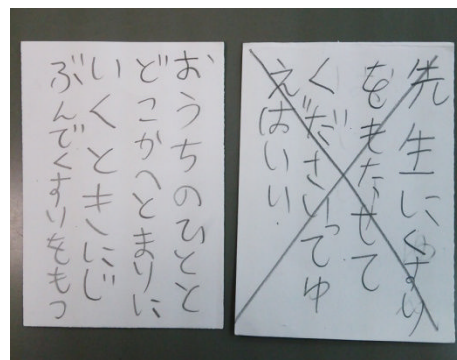 先生にくすり
をもたせて
くださいってゆ
えはいい
おうちのひとと
どこかへとまりに
いくときにじ
ぶんでくすりをもつ